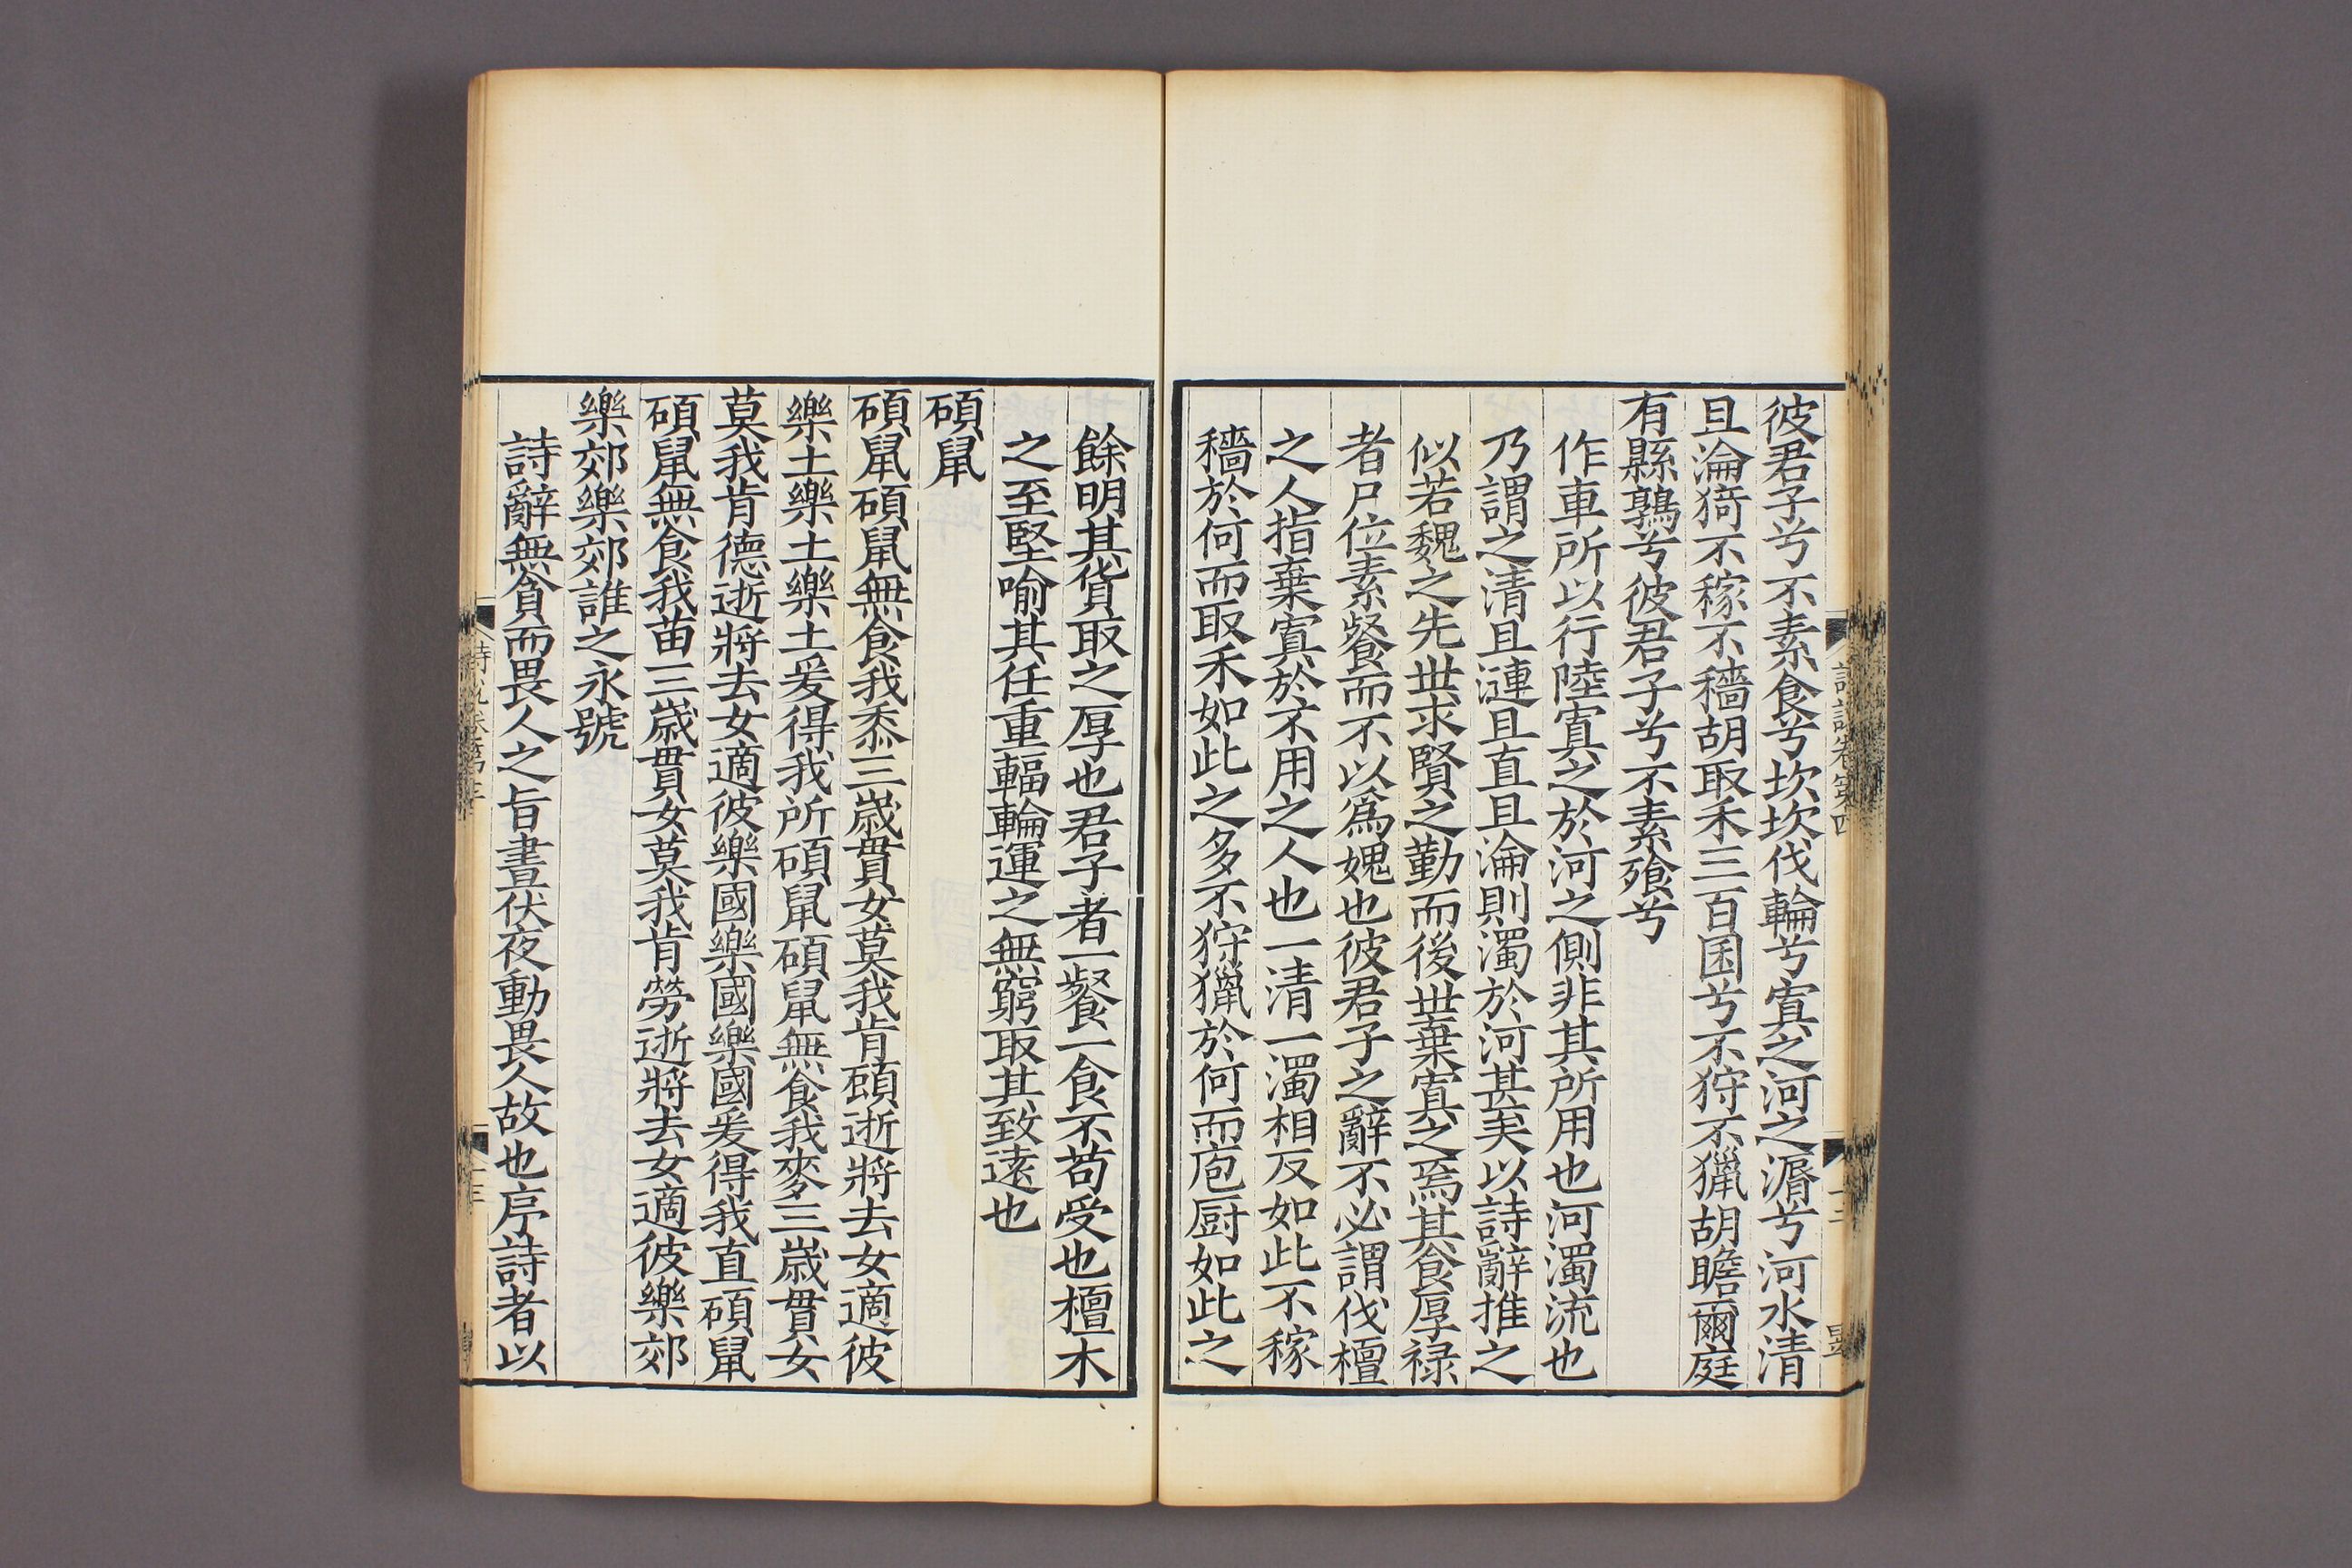 彼君子兮不素食兮坎坎伐輪兮寘之河之漘兮河水清
且淪猗不稼不穡胡取禾三百囷兮不狩不獵胡瞻爾庭
有縣鶉兮彼君子兮不素飱兮
作車所以行陸寘之於河之側非其所用也河濁流也
乃謂之清且漣且直且淪則濁於河甚矣以詩辭推之
似若魏之先世求賢之勤而後世棄寘之焉其食厚禄
者尸位素餐而不以爲媿也彼君子之辭不必謂伐檀
之人指棄寘於不用之人也一清一濁相反如此不稼
穡於何而取禾如此之多不狩獵於何而庖厨如此之
餘明其貨取之厚也君子者一餐一食不苟受也檀木
之至堅喻其任重輻輪運之無窮取其致遠也
碩鼠
碩鼠碩鼠無食我黍三歲貫女莫我肯顧逝將去女適彼
樂土樂土樂土爰得我所碩鼠碩鼠無食我麥三歲貫女
莫我肯德逝將去女適彼樂國樂國樂國爰得我直碩鼠
碩鼠無食我苗三歲貫女莫我肯勞逝將去女適彼樂郊
樂郊樂郊誰之永號
詩辭無貪而畏人之旨晝伏夜動畏人故也序詩者以